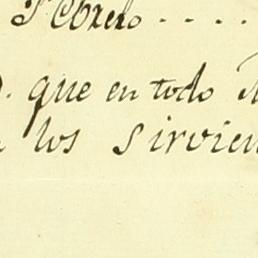 Febrero . . . .
. que en todo
los sirvien